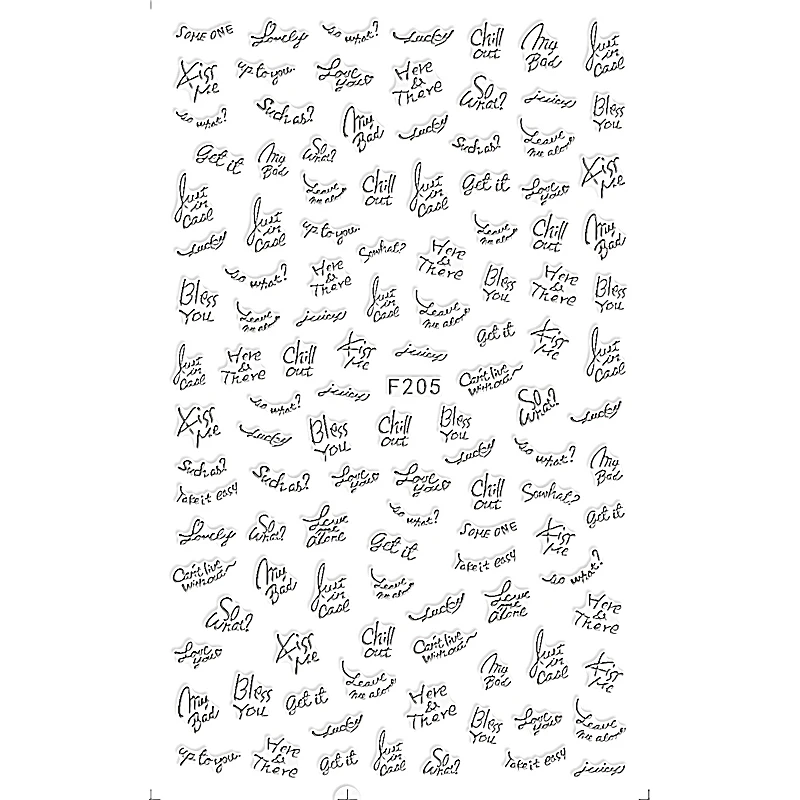 SOME ONE
Lovely
so what?
Lucky
Chill
out
My
Bad
Just
in
Case
Kiss
Me
up to you
Love
you
Here
&
There
So
What?
juicy
Bless
You
so what?
Such as?
My
Bad
Lucky
Such as?
Leave
me alone
Get it
My
Bad
So
What?
Kiss
Me
Just
in
Case
Leave
me alone
Chill
out
Just
in
Case
Get it
Love
you
Lucky
Just
in
Case
up to you
So what?
Here
&
There
Leave
me alone
Chill
out
My
Bad
so what?
Here
&
There
Bless
You
Leave
me alone
juicy
Just
in
Case
Leave
me alone
Bless
You
Here
&
There
Bless
You
Get it
Kiss
Me
Just
in
Case
Here
&
There
Chill
out
Kiss
Me
juicy
Just
in
Case
juicy
F205
Can't live
Without
so what?
So
What?
Lucky
Kiss
Me
Lucky
Bless
You
Chill
out
Bless
You
Lucky
so what?
My
Bad
Such as?
Take it easy
Such as?
Love
you
Love
you
Chill
out
So what?
Get it
Lovely
So
What?
Leave
me
alone
so what?
Get it
SOME ONE
Take it easy
Kiss
Me
so what?
Can't live
Without
My
Bad
Just
in
Case
Leave
me alone
Lucky
Leave
me
alone
Here
&
There
So
What?
Love
you
Kiss
Me
Chill
out
Can't live
Without
My
Bad
Just
in
Case
Kiss
Me
My
Bad
Bless
You
Get it
Leave
me alone
Here
&
There
Lucky
Bless
You
Love
you
Leave
me alone
up to you
Here
&
There
Get it
Just
in
Case
So
What?
Take it easy
juicy